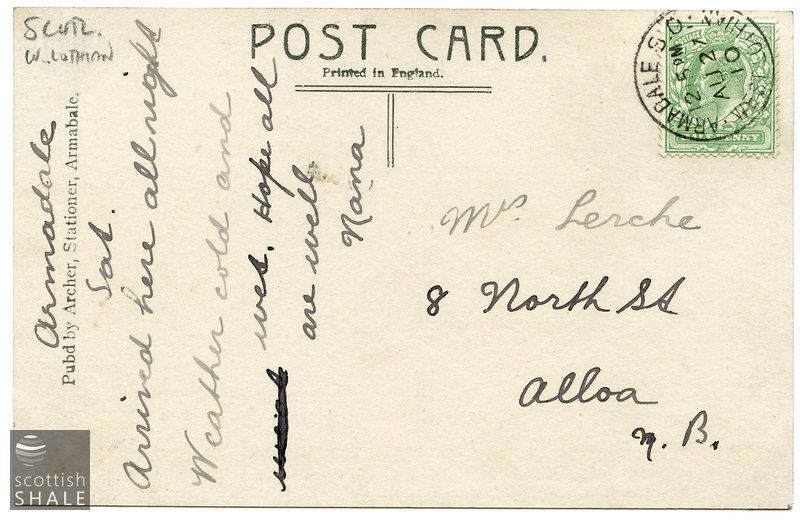 SCOTL.
W. LOTHIAN
POST CARD.
Printed in England.
Pubd by Archer, Stationer, Armabale.
Armadale
Sat.
Arrived here all right
Weather cold and
wet. Hope all
are well
Nana
ARMADALE S.O.
2.5 PM
AU 27
10
HALFPENNY
Mrs Lerche
8 North St
Alloa
N. B.
scottish
SHALE